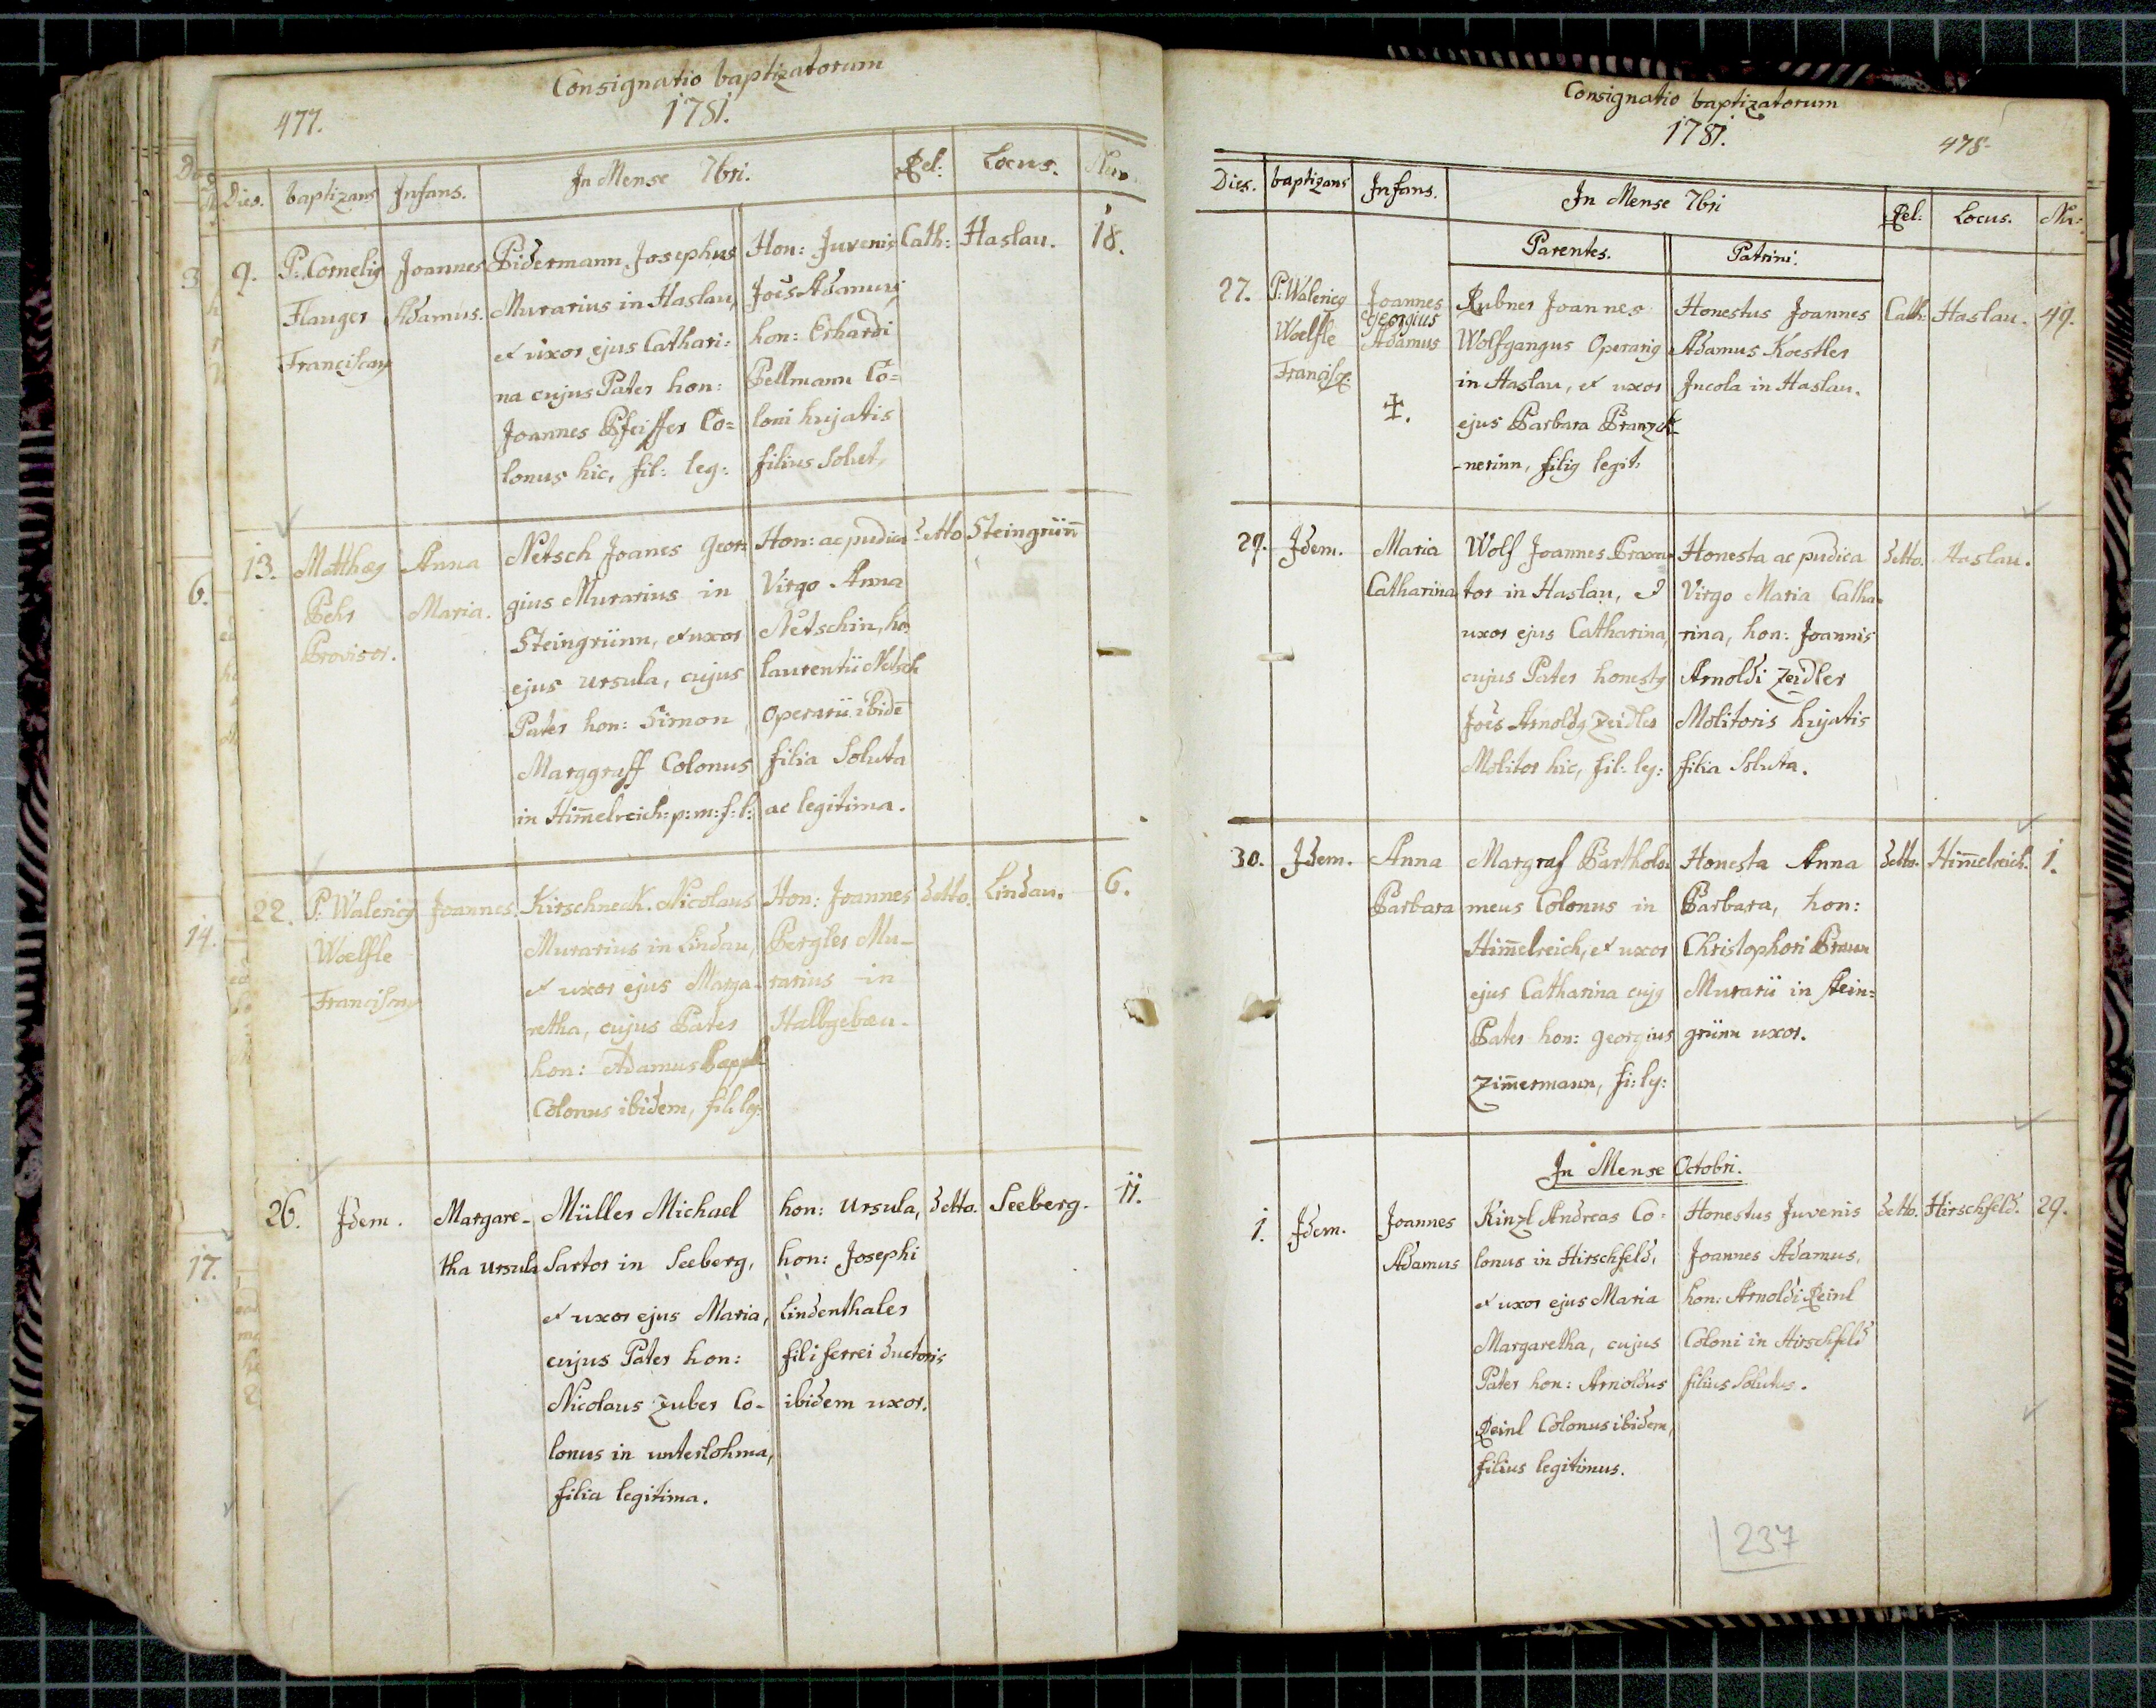 Consignatio baptizatorum
477.
1781.
Dies. baptizans Infans. In Mense 7bri. Rel: Locus.
9. P: Cornelig Joannes Bidermann Josephus Hon: Juvenis Cath: Haslau. 18.
Flauger Adamus. Murarius in Haslau, Joës Adamus
Franciscang et uxor ejus Cathari= hon: Erhardi
na cujus Pater hon: Bellmann Co=
Joannes Pfeiffer Co= loni hujatis
lonus hic, fil: leg: filius Solut,
13. Matthæg Anna Netsch Joanes Geor= Hon: ac pudica detto Steingrün̄
Behr Maria. gius Murarius in Virgo Anna
Provisor. Steingrünn, et uxor Netschin, ho
ejus Ursula, cujus laurentii Netsch
Pater hon: Simon Operarii ibidē
Marggraff Colonus filia Soluta
in Him̄elreich: p: m: f: l: ac legitima.
22. P: Walericg Joannes. Kirschneck Nicolaus Hon: Joannes detto. Lindau. 6.
Woelfle Murarius in Lindau, Bergler Mu-
Franciscang et uxor ejus Marga- rarius in
retha, cujus Pater Halbgebæu.
hon: Adamus
Colonus ibidem, fil: leg:
26. Idem. Margare- Müller Michael hon: Ursula, detto. Seeberg. 11.
tha Ursula Sartor in Seeberg, hon: Josephi
et uxor ejus Maria, Lindenthaler
cujus Pater hon: fili ferrei ductoris
Nicolaus Zuber Co- ibidem uxor.
lonus in unterlohma,
filia legitima.
3
6.
14.
17.
Consignatio baptizatorum
1781.
478.
Dies. baptizans Infans. In Mense 7bri Rel: Locus. Nu:
Parentes. Patrini.
27. P: Walericg Joannes Rubner Joannes Honestus Joannes Cath: Haslau. 49.
Woelfle Georgius Adamus Wolfgangus Operarig Adamus Koestler
Francisc: in Haslau, et uxor Incola in Haslau.
✝. ejus Barbara Pranzk
-nerinn, filig legit:
29. Idem. Maria Wolf Joannes Braxa= Honesta ac pudica detto. Haslau.
Catharina tor in Haslau, & Virgo Maria Catha-
uxor ejus Catharina, rina, hon: Joannis
cujus Pater honestg Arnoldi Zeidler
Joës Arnoldg Zeidler Molitoris hujatis
Molitor hic, fil: leg: filia Soluta.
30. Idem. Anna Margraf Bartholo= Honesta Anna detto. Him̄elreich. 1.
Barbara meus Colonus in Barbara, hon:
Him̄elreich, et uxor Christophori Braun
ejus Catharina cujg Murarii in Stein=
Pater hon: Georgius grünn uxor.
Zim̄ermann, fi: leg:
In Mense Octobri.
1. Idem. Joannes Kinzl Andreas Co= Honestus Juvenis detto. Hirschfeld. 29.
Adamus lonus in Hirschfeld, Joannes Adamus,
et uxor ejus Maria hon: Arnoldi Reinl
Margaretha, cujus Coloni in Hirschfeld
Pater hon: Arnoldus filius Solutus.
Reinl Colonus ibidem,
filius legitimus.
237